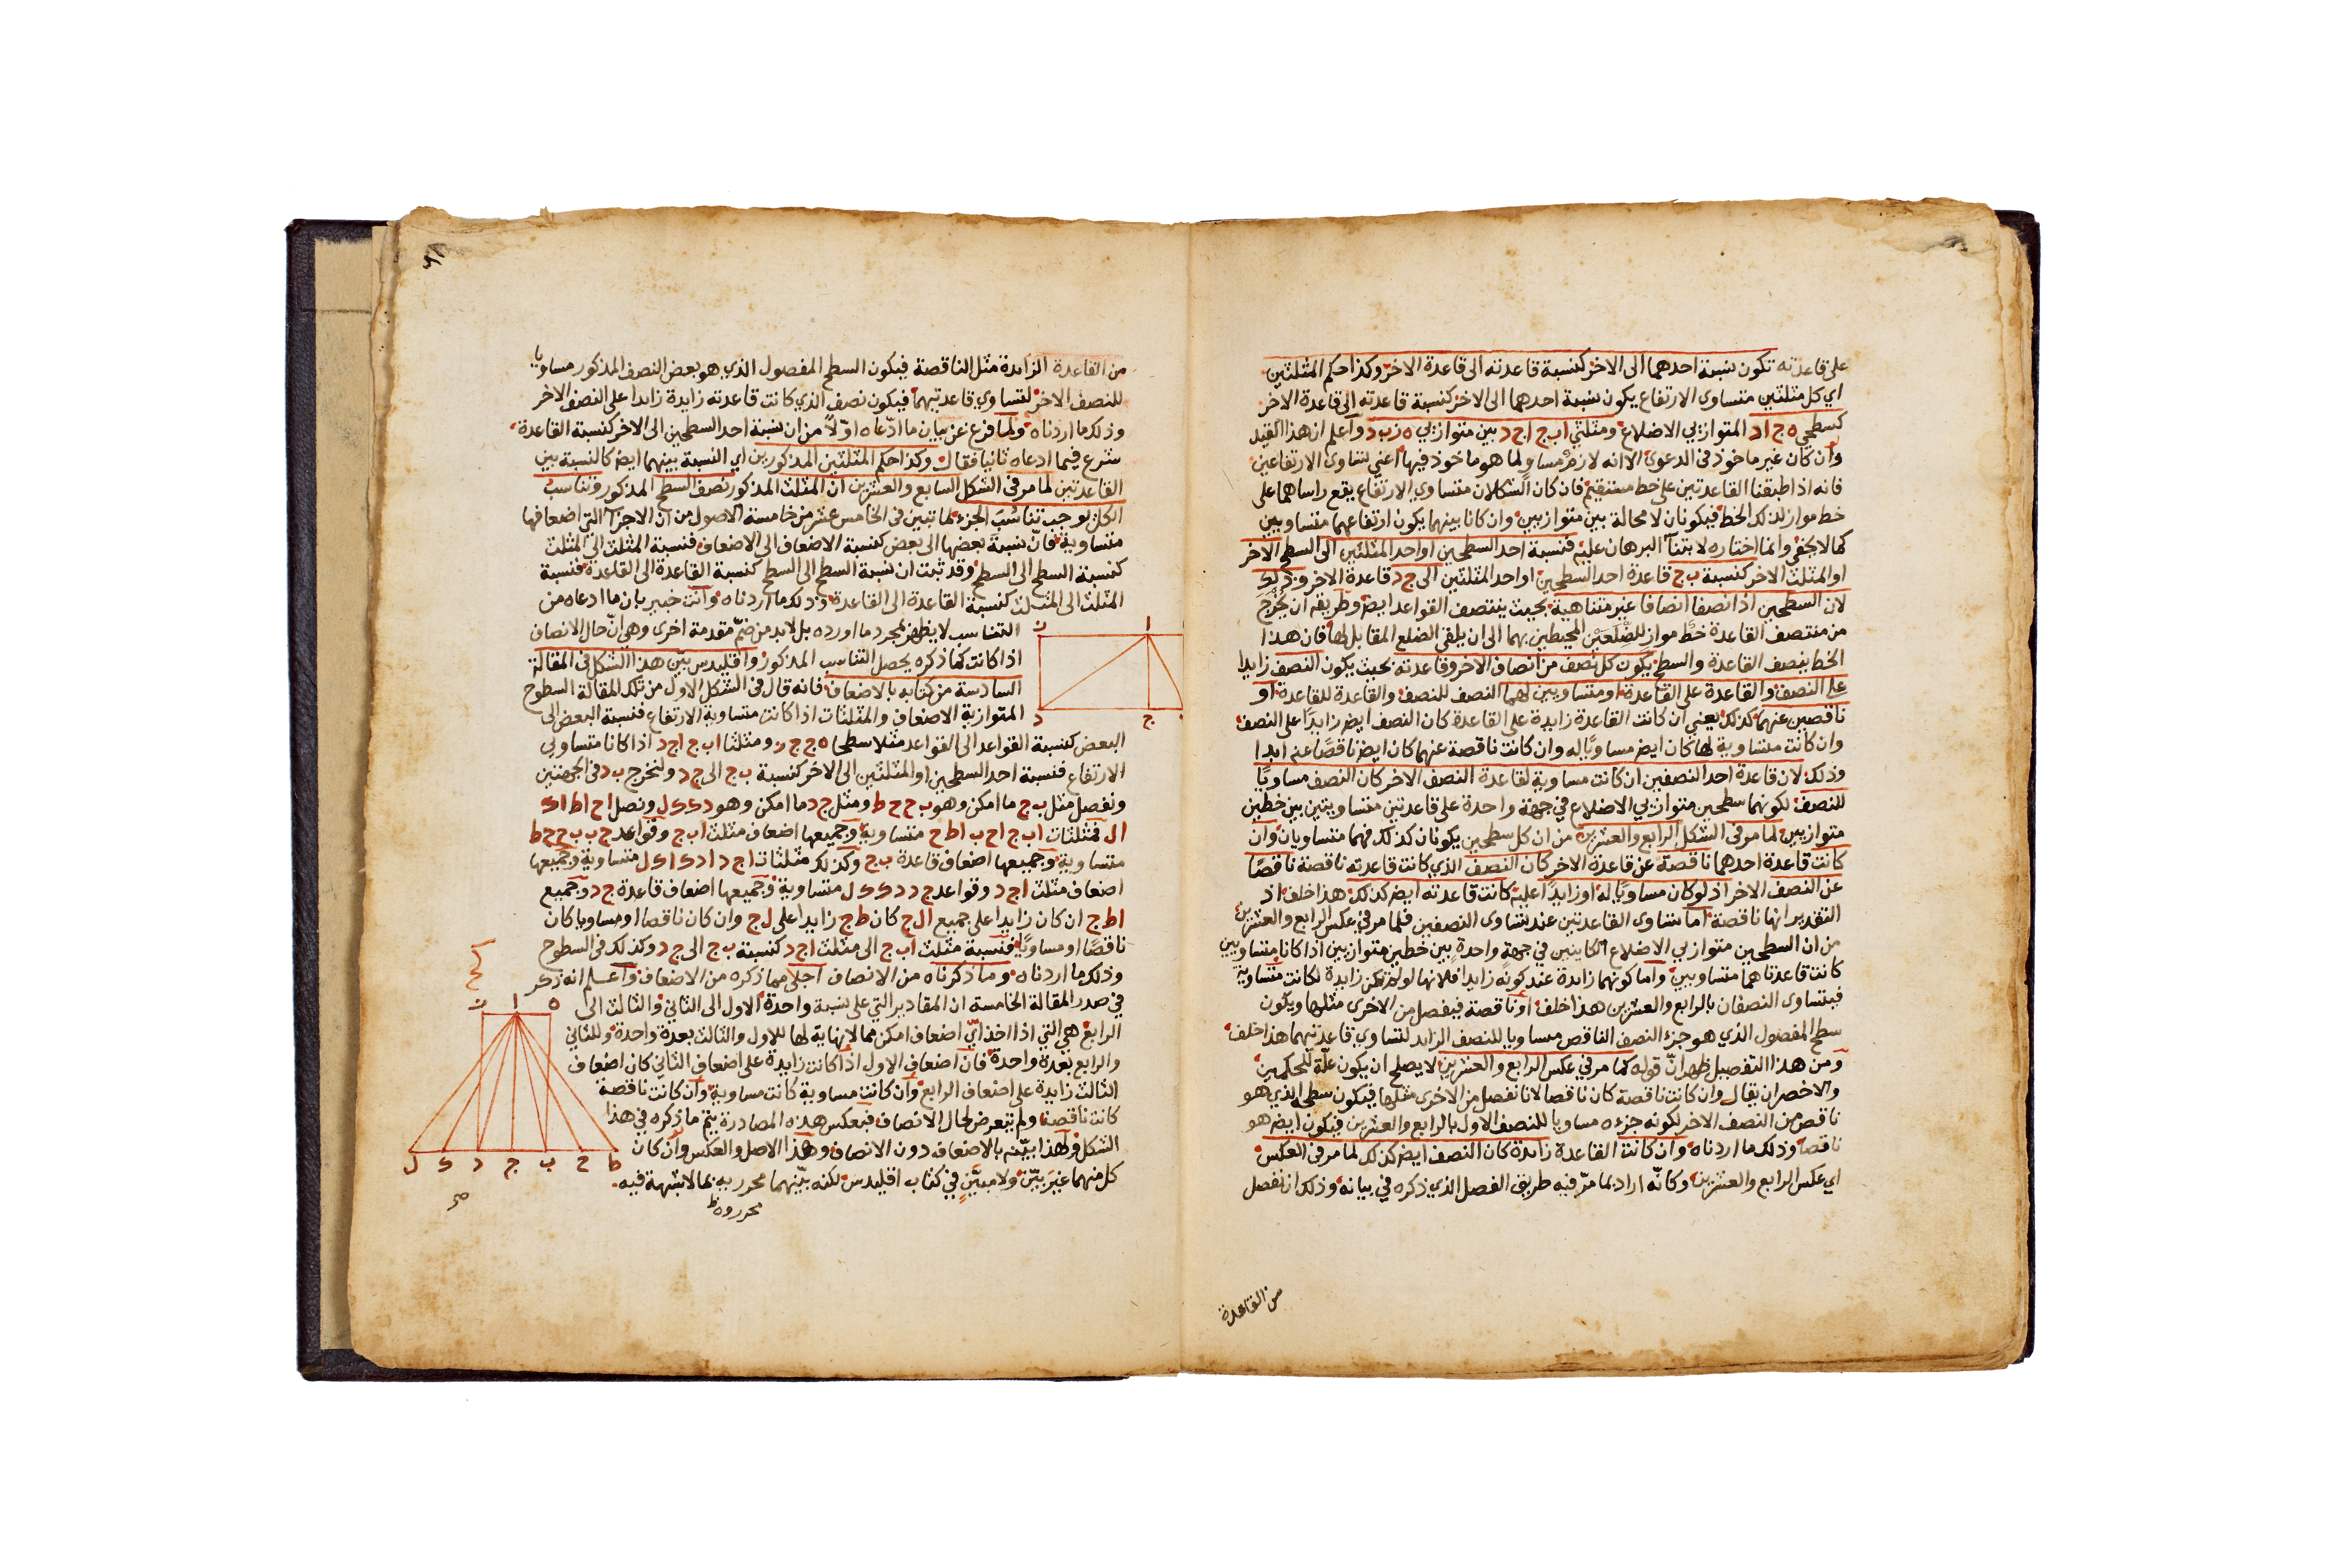 على قاعدته تكون نسبة احدهما الى الاخر كنسبة قاعدته الى قاعدة الاخر وكذا حكم المثلثين
اي كل مثلثين متساوى الارتفاع يكون نسبة احدهما الى الاخر كنسبة قاعدته الى قاعدة الاخر
كسطحي ه ج اد المتوازيي الاضلاع ومثلثي اب ج اج د بين متوازيي ه ز ب د واعلم ان هذا القيد
وان كان غير ماخوذ فى الدعوى الا انه لازم مساو لما هو ماخوذ فيها اعني تساوى الارتفاعين
فانه اذا طبقنا القاعدتين على خط مستقيم فان كان الشكلان متساوي الارتفاع يقع راساهما على
خط مواز لذلك الخط فيكونان لا محالة بين متوازيين وان كانا بينهما يكون ارتفاعهما متساويين
كما لا يخفى وانما اختاره لابتناء البرهان عليه فنسبة احد السطحين او احد المثلثين الى السطح الاخر
او المثلث الاخر كنسبة ب ج قاعدة احد السطحين او احد المثلثين الى ج د قاعدة الاخر وذلك
لان السطحين اذا نصفا انصافا غير متناهية بحيث ينتصف القواعد ايض وطريقه ان يخرج
من منتصف القاعدة خط مواز للضلعين المحيطين بهما الى ان يلقى الضلع المقابل لها فان هذا
الخط ينصف القاعدة والسطح يكون كل نصف من انصاف الاخر وقاعدته بحيث يكون النصف زايدا
على النصف والقاعدة على القاعدة او متساويين لهما النصف للنصف والقاعدة للقاعدة او
ناقصين عنهما كذلك يعني ان كانت القاعدة زايدة على القاعدة كان النصف ايض زايدا على النصف
وان كانت متساوية لها كان ايض مساويا له وان كانت ناقصة عنهما كان ايض ناقصا عنه ابدا
وذلك لان قاعدة احد النصفين ان كانت مساوية لقاعدة النصف الاخر كان النصف مساويا
للنصف لكونهما سطحين متوازيي الاضلاع في جهة واحدة على قاعدتين متساويتين بين خطين
متوازيين لما مر فى الشكل الرابع والعشرين من ان كل سطحين يكونان كذلك فهما متساويان وان
كانت قاعدة احدهما ناقصة عن قاعدة الاخر كان النصف الذي كانت قاعدته ناقصة ناقصا
عن النصف الاخر اذ لو كان مساويا له او زايدا عليه كانت قاعدته ايض كذلك هذا خلف اذ
التقدير انها ناقصة اما تساوى القاعدتين عند تساوى النصفين فلما مر في عكس الرابع والعشرين
من ان السطحين متوازيي الاضلاع الكاينين في جهة واحدة بين خطين متوازيين اذا كانا متساويين
كانت قاعدتاهما متساويين واما كونهما زايدة عند كونه زايدا فلانها لو لم تكن زايدة لكانت متساوية
فيتساوى النصفان بالرابع والعشرين هذا خلف او ناقصة فيفصل من الاخرى مثلها ويكون
سطح المفصول الذي هو جزء النصف الناقص مساويا للنصف الزايد لتساوي قاعدتيهما هذا خلف
ومن هذا التفصيل ظهر ان قوله كما مر في عكس الرابع والعشرين لا يصلح ان يكون علة للحكمين
والاخصر ان يقال وان كانت ناقصة كان ناقصا لانا نفصل من الاخرى مثلها فيكون سطحه الذي هو
ناقص من النصف الاخر لكونه جزءه مساويا للنصف الاول بالرابع والعشرين فيكون ايض هو
ناقصا وذلك ما اردناه وان كانت القاعدة زايدة كان النصف ايض كذلك لما مر فى العكس
اي عكس الرابع والعشرين وكانه اراد بما مر فيه طريق الفصل الذي ذكره في بيانه وذلك ان نفصل
من القاعدة
من القاعدة الزايدة مثل الناقصة فيكون السطح المفصول الذي هو بعض النصف المذكور مساويا
للنصف الاخر لتساوي قاعدتيهما فيكون نصف الذي كانت قاعدته زايدة زايدا على النصف الاخر
وذلك ما اردناه ولما فرغ عن بيان ما ادعاه اولا من ان نسبة احد السطحين الى الاخر كنسبة القاعدة
شرع فيما ادعاه ثانيا فقال وكذا حكم المثلثين المذكورين اي النسبة بينهما ايض كالنسبة بين
القاعدتين لما مر فى الشكل السابع والعشرين ان المثلث المذكور نصف السطح المذكور وتناسب
الكل يوجب تناسب الجزء لما تبين فى الخامس عشر من خامسة الاصول من ان الاجزاء التي اضعافها
متساوية فان نسبة بعضها الى بعض كنسبة الاضعاف الى الاضعاف فنسبة المثلث الى المثلث
كنسبة السطح الى السطح وقد ثبت ان نسبة السطح الى السطح كنسبة القاعدة الى القاعدة فنسبة
المثلث الى المثلث كنسبة القاعدة الى القاعدة وذلك ما اردناه وانت خبير بان ما ادعاه من
التناسب لا يظهر بمجرد ما اورده بل لابد من ضم مقدمة اخرى وهي ان حال الانصاف
اذا كانت كما ذكره يحصل التناسب المذكور واقليدس بين هذا الشكل فى المقالة
السادسة من كتابه بالاضعاف فانه قال فى الشكل الاول من تلك المقالة السطوح
المتوازية الاضعاف والمثلثات اذا كانت متساوية الارتفاع فنسبة البعض الى
البعض كنسبة القواعد الى القواعد مثلا سطحا ه ج ج ز ومثلثا اب ج اج د اذا كانا متساويي
الارتفاع فنسبة احد السطحين او المثلثين الى الاخر كنسبة ب ج الى ج د ولنخرج ب د فى الجهتين
ونفصل مثل ب ج ما امكن وهو ب ح ح ط ومثل ج د ما امكن وهو د ك ك ل ونصل اح اط اك
ال فمثلثات اب ج اح ب اط ح متساوية وجميعها اضعاف مثلث اب ج وقواعد ج ب ب ح ح ط
متساوية وجميعها اضعاف قاعدة ب ج وكذلك مثلثات اج د اد ك اك ل متساوية وجميعها
اضعاف مثلث اج د وقواعد ج د د ك ك ل متساوية وجميعها اضعاف قاعدة ج د وجميع
اط ج ان كان زايدا على جميع ال ج كان ط ج زايدا على ل ج وان كان ناقصا او مساويا كان
ناقصا او مساويا فنسبة مثلث اب ج الى مثلث اج د كنسبة ب ج الى ج د وكذلك فى السطوح
وذلك ما اردناه وما ذكرناه من الانصاف اجلى مما ذكره من الاضعاف واعلم انه ذكر
في صدر المقالة الخامسة ان المقادير التي على نسبة واحدة الاول الى الثاني والثالث الى
الرابع هي التي اذا اخذ اي اضعاف امكن مما لا نهاية لها للاول والثالث بعدة واحدة وللثاني
والرابع بعدة واحدة فان اضعاف الاول اذا كانت زايدة على اضعاف الثاني كان اضعاف
الثالث زايدة على اضعاف الرابع وان كانت مساوية كانت مساوية وان كانت ناقصة
كانت ناقصة ولم يتعرض لحال الانصاف فبعكس هذه المصادرة يتم ما ذكره في هذا
الشكل ولهذا بينه بالاضعاف دون الانصاف وهذا الاصل والعكس وان كان
كل منهما غير بين ولا مبين في كتاب اقليدس لكنه بينهما محرريه بما لا شبهة فيه
ا
ج
د
ه
ا
ط ح ب ج د ك ل